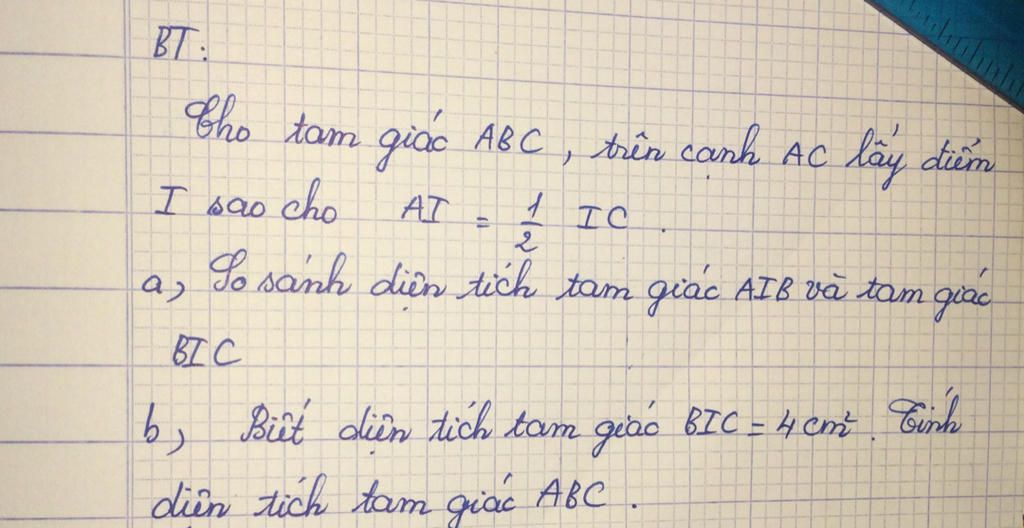 BT:
Cho tam giác ABC, trên cạnh AC lấy điểm
I sao cho AI = 1/2 IC.
a, So sánh diện tích tam giác AIB và tam giác
BIC
b, Biết diện tích tam giác BIC = 4 cm². Tính
diện tích tam giác ABC.